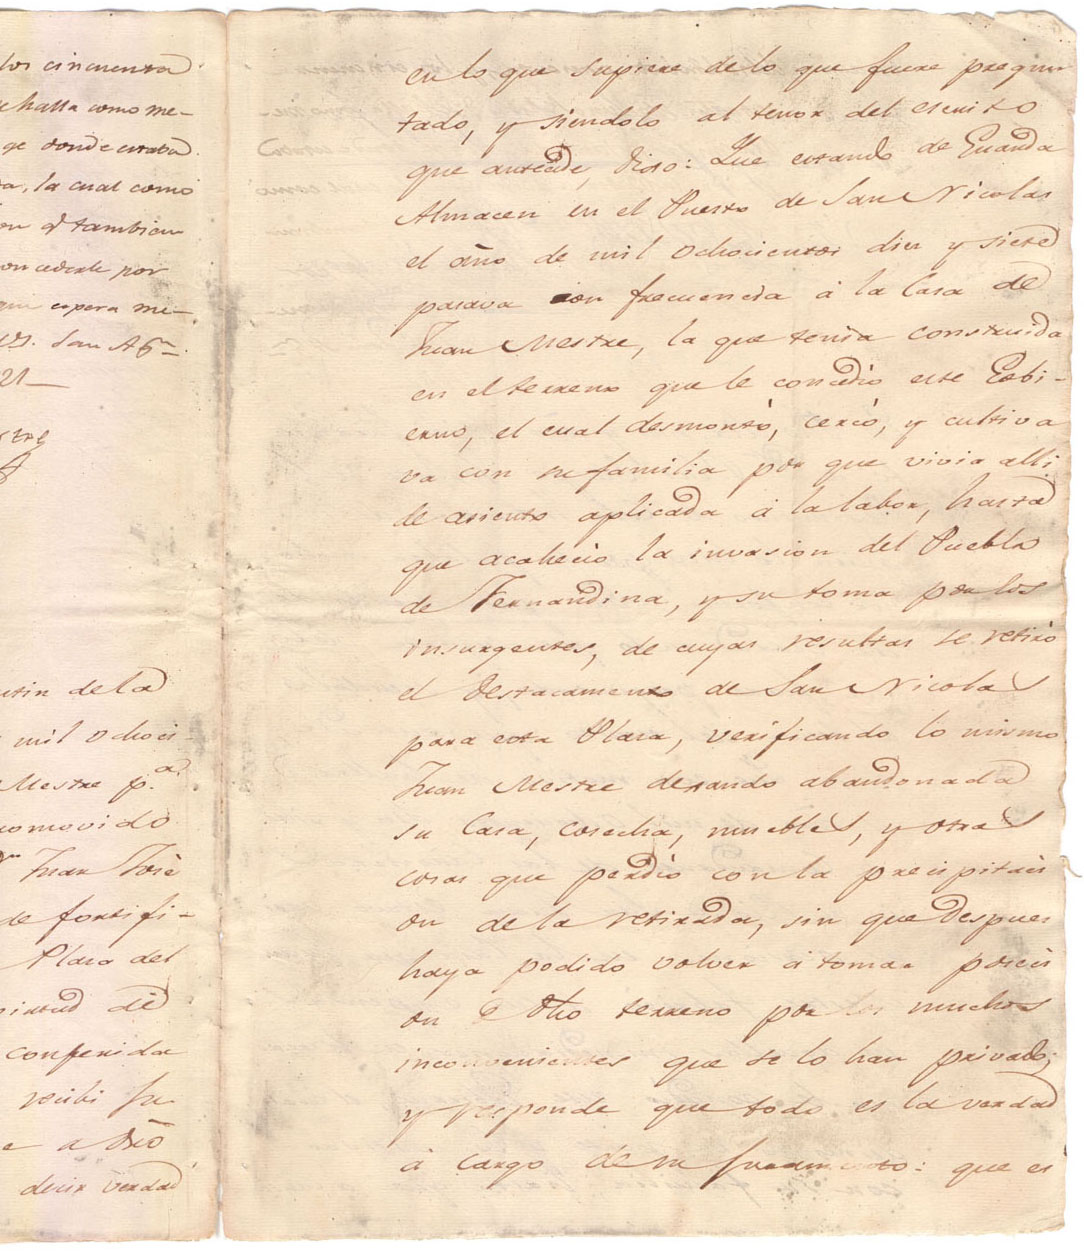 los cincuenta
halla como me-
ge donde estaba
da, la cual como
on q.e tambien
concederle por
que espera me-
San Ag.n
21—
utin de la
mil ochoci
Mestre p.a
romovido
Juan José
de fortifi-
Plasa del
virtud de
conferida
recibi Ju
e a dho
decir verdad
en lo que supiere de lo que fuere pregun
tado, y siendolo al tenor del escrito
que antecede, dixo: Que estando de Guarda
Almacen en el Puesto de San Nicolas
el año de mil ochocientos dies y siete
pasava con frecuencia à la Casa de
Juan Mestre, la que tenia construida
en el terreno que le concedió este Gobi-
erno, el cual desmontò, cercò, y cultiva
va con su familia por que vivia alli
de asiento aplicada à la labor, hasta
que acahecio la invasion del Pueblo
de Fernandina, y su toma por los
insurgentes, de cuyas resultas se retirò
el Destacamento de San Nicolas
para esta Plasa, verificando lo mismo
Juan Mestre dexando abandonada
su Casa, cosecha, muebles, y otras
cosas que perdió con la precipitaci
on de la retirada, sin que despues
haya podido volver à tomar poseci
on de dho terreno por los muchos
inconvenientes que se lo han privado;
y responde que todo es la verdad
à cargo de su juramento: que es